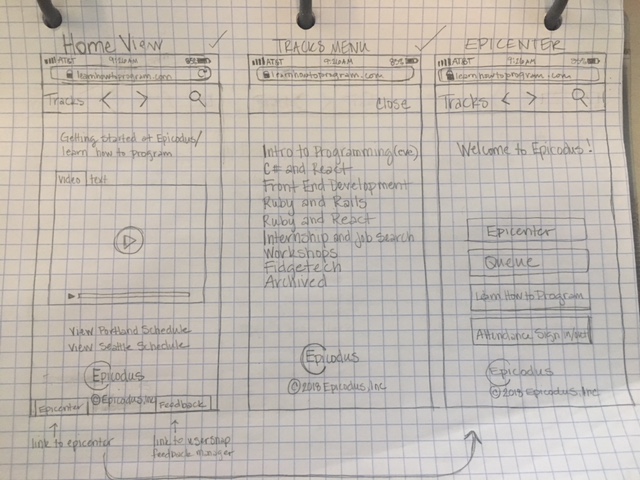 Home View
AT&T 9:26AM 85%
learnhowtoprogram.com
Tracks < >
Getting started at Epicodus/
learn how to program
video text
View Portland Schedule
View Seattle Schedule
Epicodus
©Epicodus, Inc
Epicenter
Feedback
link to epicenter
link to usersnap
feedback manager
TRACKS MENU
AT&T 9:26AM 85%
learnhowtoprogram.com
Close
Intro to Programming (eve)
C# and React
Front End Development
Ruby and Rails
Ruby and React
Internship and job search
Workshops
Fidgetech
Archived
Epicodus
©2018 Epicodus, Inc
EPICENTER
AT&T 9:26AM 85%
learnhowtoprogram.com
Tracks < >
Welcome to Epicodus!
Epicenter
Queue
Learn How to Program
Attendance Sign in/out
Epicodus
©2018 Epicodus, Inc